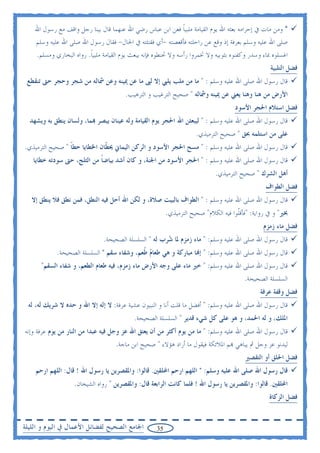 " ومن مات في إحرامه بعثه الله يوم القيامة ملبياً" فعن ابن عباس رضي الله عنهما قال بينا رجل واقف مع رسول الله
صلى الله عليه وسلم بعرفة إذ وقع عن راحلته فأقعصته -أي قتلته في الحال- فقال رسول الله صلى الله عليه وسلم
اغسلوه بماء وسدر وكفنوه بثوبيه ولا تخمروا رأسه ولا تحنطوه فإنه يبعث يوم القيامة ملبياً. رواه البخاري ومسلم.
فضل التلبية
قال رسول الله صلى الله عليه وسلم : " ما من ملب يلبي إلا لبى ما عن يمينه وعن شماله من شجر وحجر حتى تنقطع
الأرض من هنا وهنا يعني عن يمينه وشماله " صحيح الترغيب و الترهيب.
فضل استلام الحجر الأسود
قال رسول الله صلى الله عليه وسلم : " ليبعثن الله الحجر يوم القيامة وله عينان يبصر بهما، ولسان ينطق به ويشهد
على من استلمه بحق " صحيح الترمذي.
قال رسول الله صلى الله عليه وسلم : " مسح الحجر الأسود و الركن اليماني يحطان الخطايا حطاً " صحيح الترمذي.
قال رسول الله صلى الله عليه وسلم : " الحجر الأسود من الجنة، و كان أشد بياضاً من الثلج، حتى سودته خطايا
أهل الشرك " صحيح الترمذي.
فضل الطواف
قال رسول الله صلى الله عليه وسلم : " الطواف بالبيت صلاة، و لكن الله أحل فيه النطق، فمن نطق فلا ينطق إلا
بخير" و في رواية: "فأقلوا فيه الكلام" صحيح الترمذي.
فضل ماء زمزم
قال رسول الله صلى الله عليه وسلم : " ماء زمزم لما شرب له " السلسلة الصحيحة.
قال رسول الله صلى الله عليه وسلم : " إنها مباركة و هي طعام طعم، وشفاء سقم " السلسلة الصحيحة.
قال رسول الله صلى الله عليه وسلم : " خير ماء على وجه الأرض ماء زمزم، فيه طعام الطعم، و شفاء السقم"
السلسلة الصحيحة.
فضل وقفة عرفة
قال رسول الله صلى الله عليه وسلم: " أفضل ما قلت أنا و النبيون عشية عرفة: لا إله إلا الله و حده لا شريك له، له
الملك، و له الحمد، و هو على كل شيء قدير " السلسلة الصحيحة.
قال رسول الله صلى الله عليه وسلم: " ما من يوم أكثر من أن يعتق الله عز وجل فيه عبدا من النار من يوم عرفة وإنه
ليدنو عز وجل ثم يباهي بهم الملائكة فيقول ما أراد هؤلاء " صحيح ابن ماجة.
فضل الحلق أو التقصير
قال رسول الله صلى الله عليه وسلم: " اللهم ارحم المحلقين. قالوا: والمقصرين يا رسول الله ! قال: اللهم ارحم
المحلقين. قالوا: والمقصرين يا رسول الله ! فلما كانت الرابعة قال: والمقصرين " رواه الشيخان.
فضل الزكاة
35
الجامع الصحيح لفضائل الأعمال في اليوم و الليلة